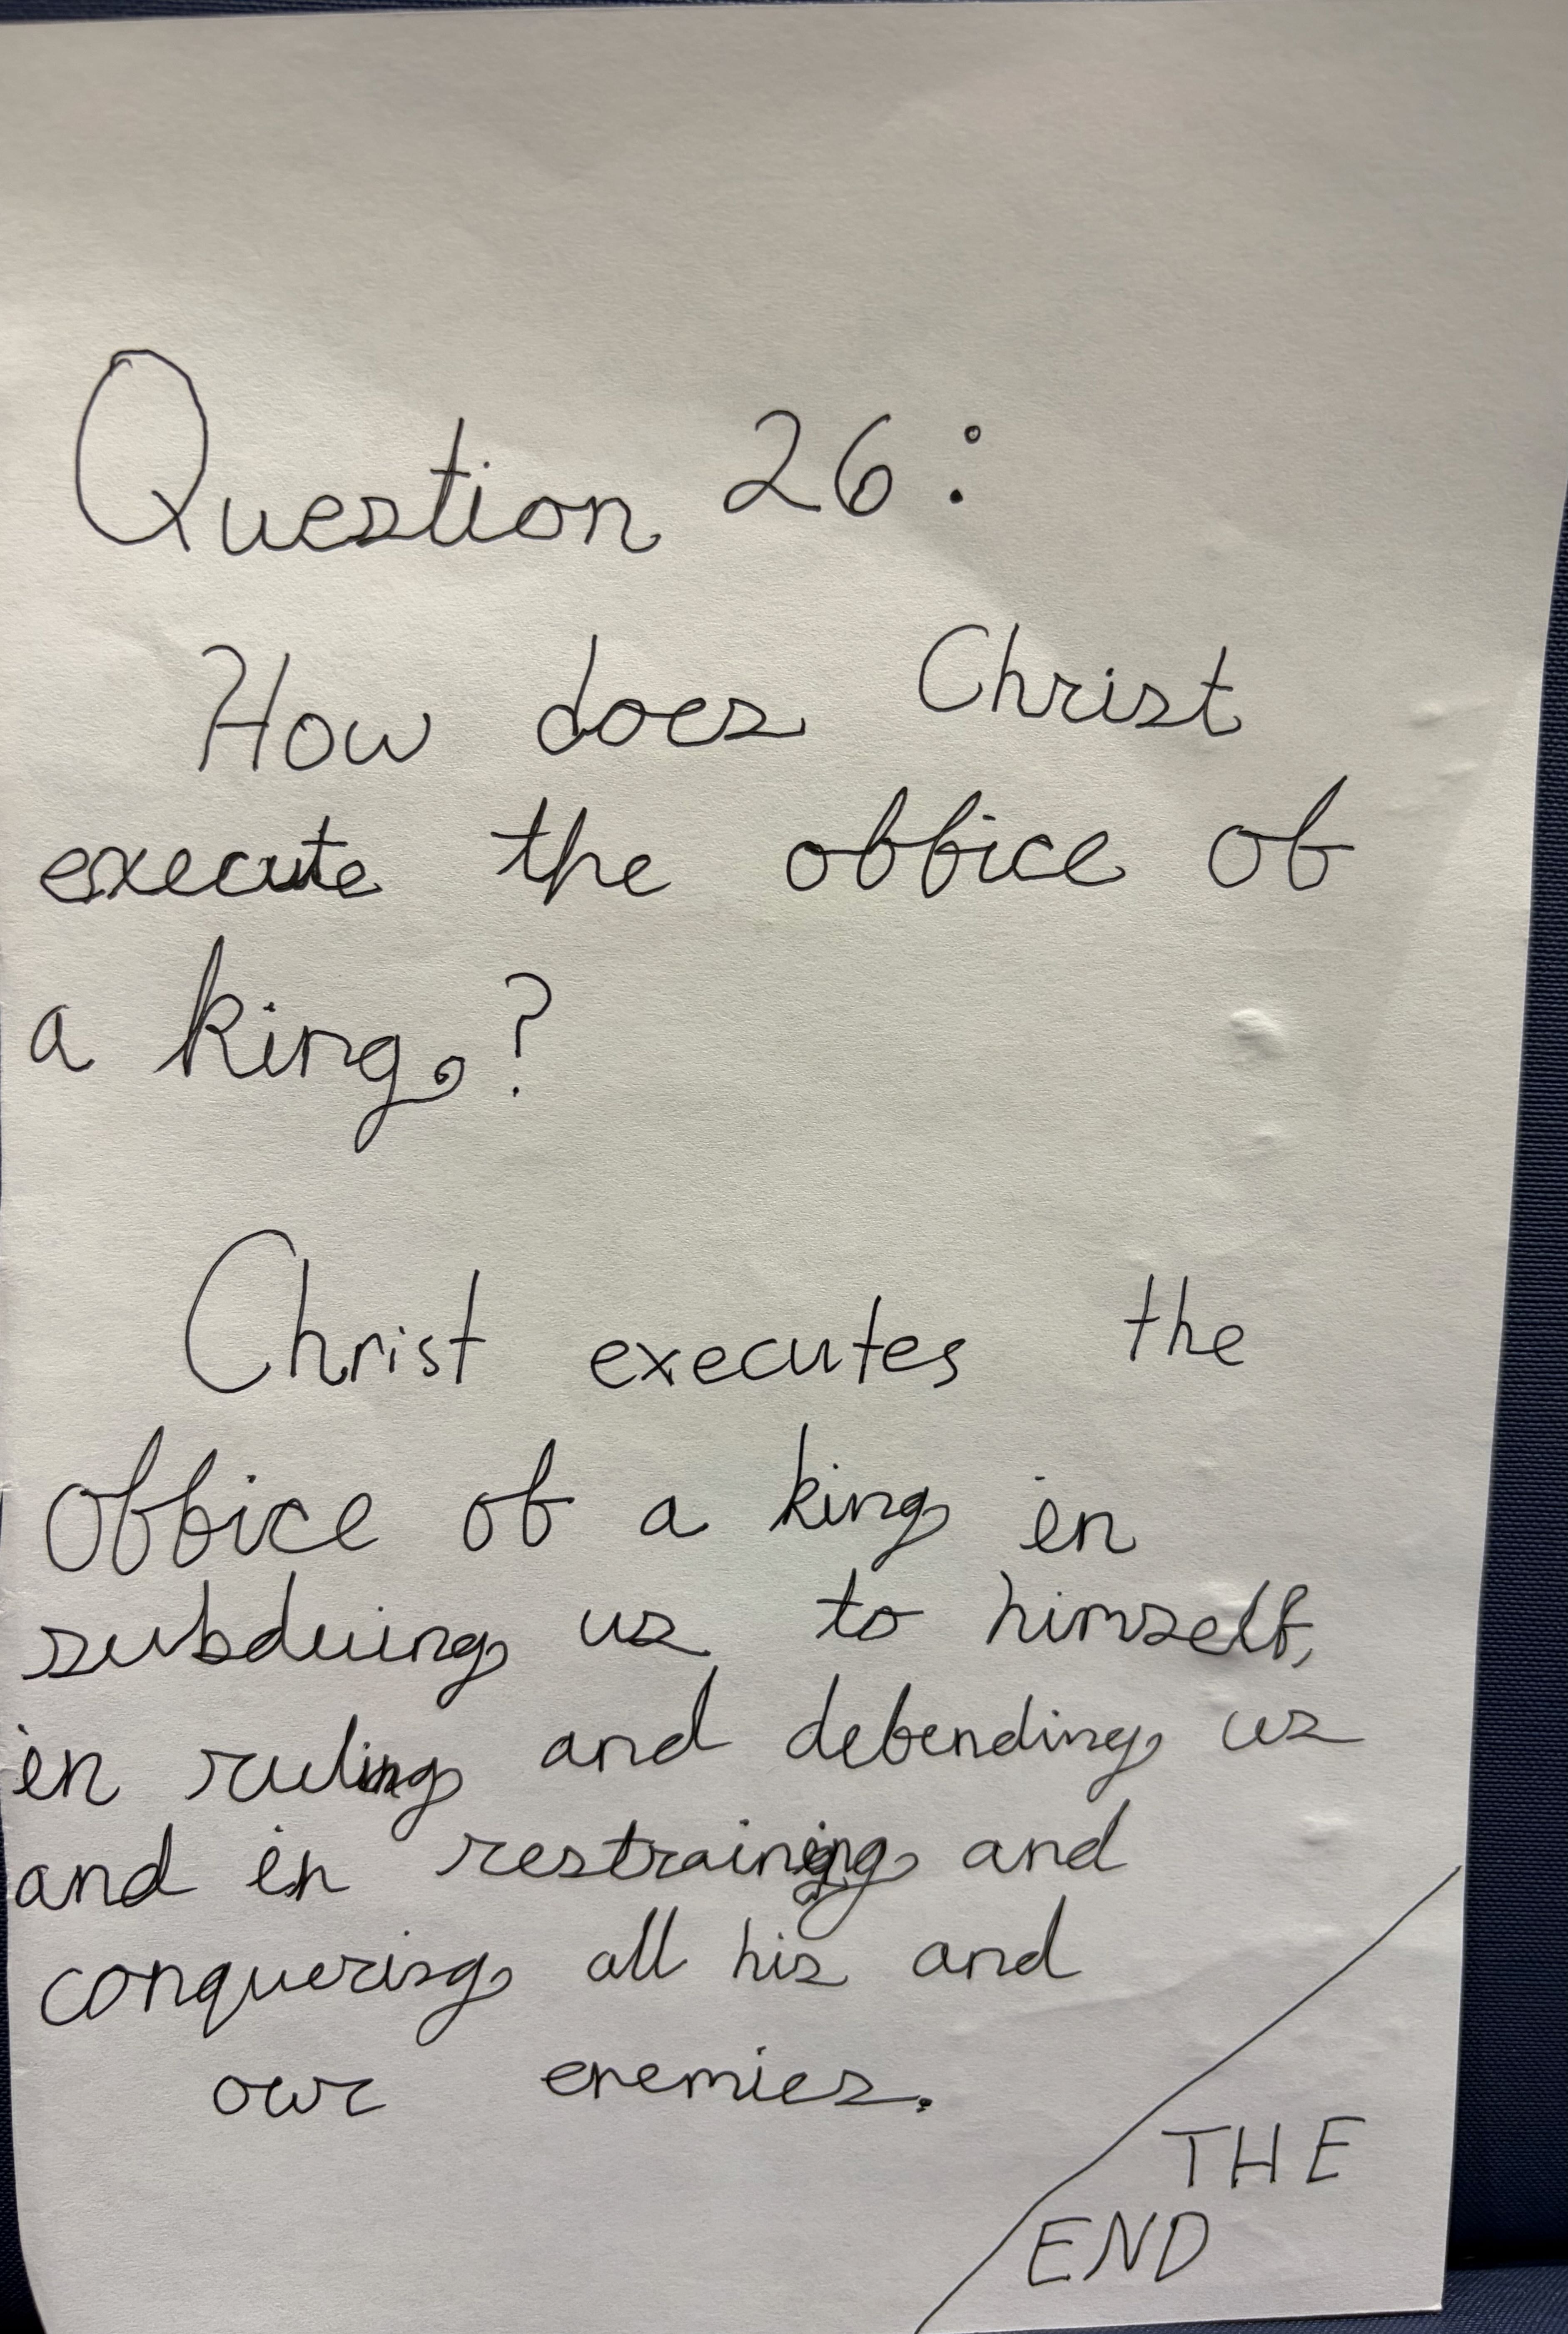 Question 26:
How does Christ
execute the office of
a king.?
Christ executes the
office of a king in
subduing us to himself,
in ruling and defending us
and in restraining and
conquering all his and
our enemies.
THE
END